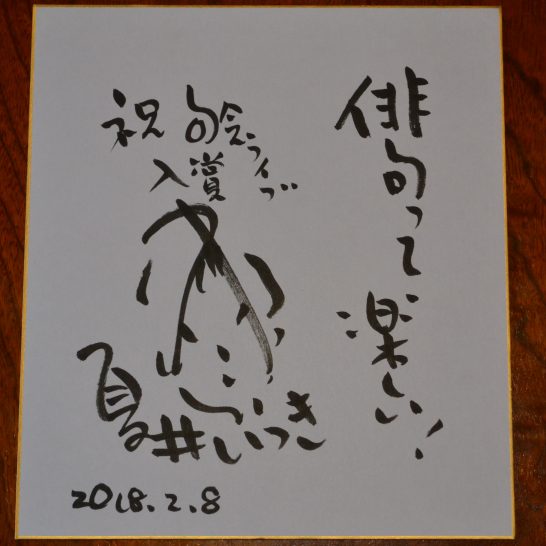 俳句って楽しい！
祝 句会ライブ
入賞
夏井いつき
2018.2.8